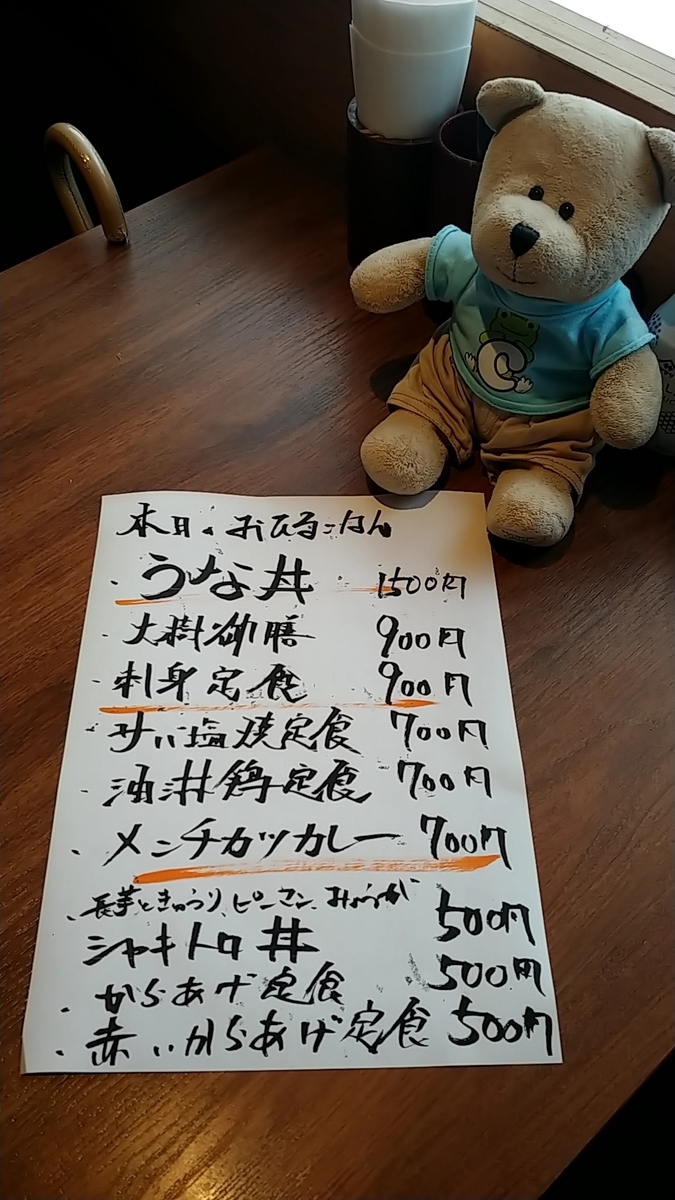 本日のおひるごはん
・うな丼 1500円
・大樹御膳 900円
・刺身定食 900円
・サバ塩焼定食 700円
・油淋鶏定食 700円
・メンチカツカレー 700円
・長芋ときゅうり、ピーマン、みょうが
シャキトロ丼 500円
・からあげ定食 500円
・赤いからあげ定食 500円